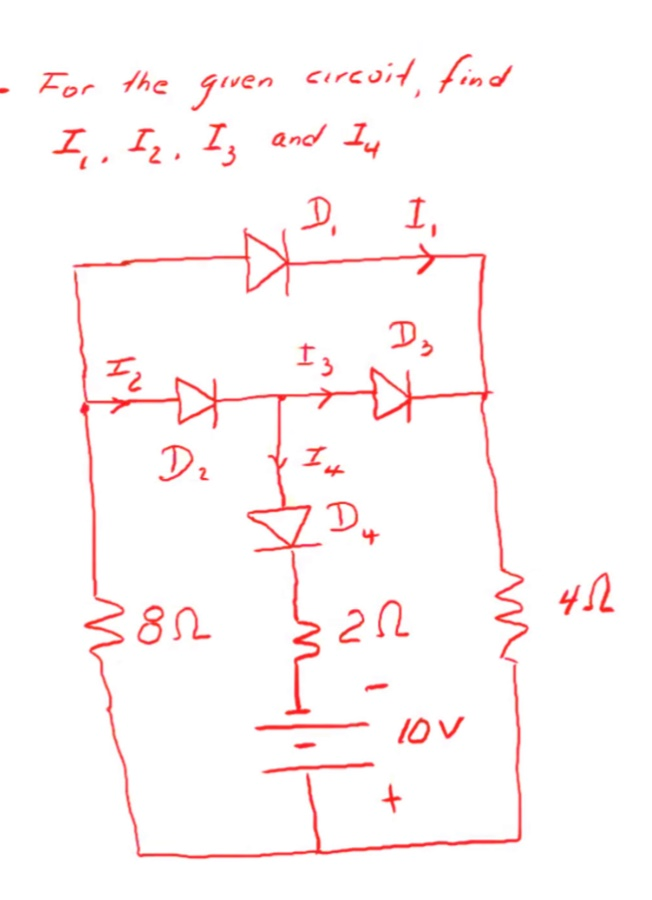 - For the given circuit, find
I₁, I₂, I₃ and I₄
D₁ I₁
D₃
I₂ I₃
D₂ I₄
D₄
8Ω 2Ω 4Ω
-
10V
+